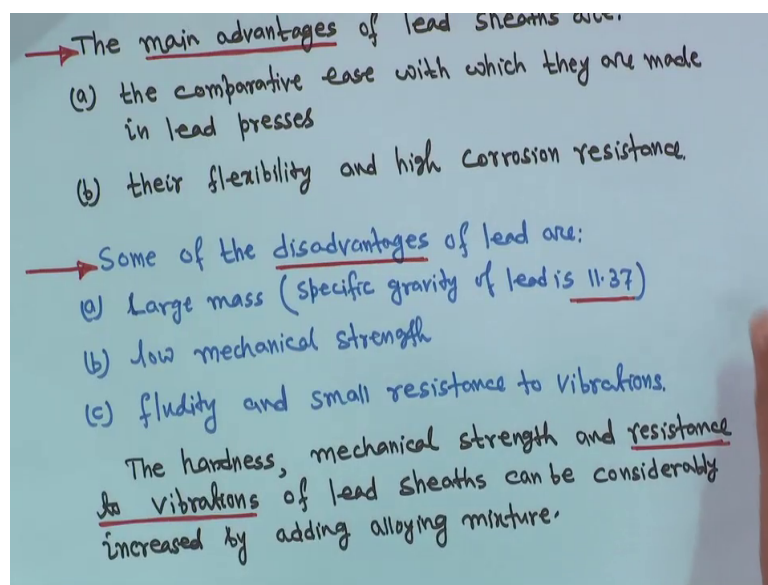 The main advantages of lead sheaths are:
(a) the comparative ease with which they are made
in lead presses
(b) their flexibility and high corrosion resistance.
Some of the disadvantages of lead are:
(a) Large mass (specific gravity of lead is 11.37)
(b) low mechanical strength
(c) fludity and small resistance to vibrations.
The hardness, mechanical strength and resistance
to vibrations of lead sheaths can be considerably
increased by adding alloying mixture.